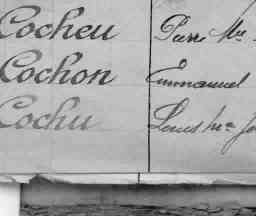 Cocheu Pierre Me
Cochon Emmanuel
Cochu Louis Me